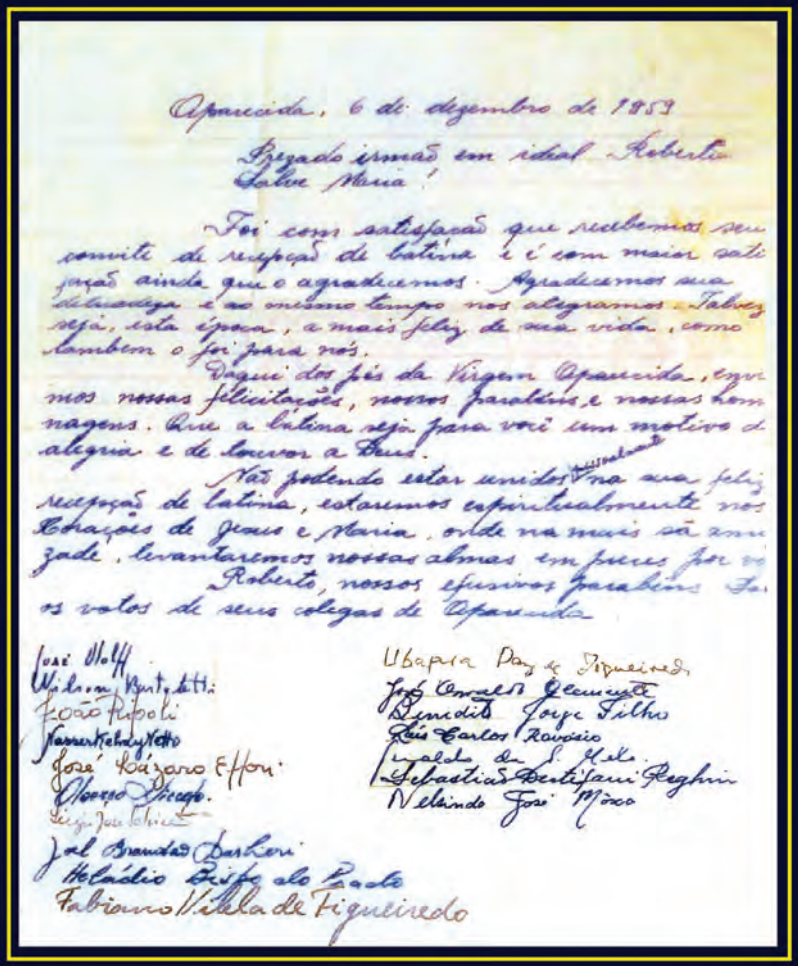 Aparecida, 6 de dezembro de 1959
Prezado irmão em ideal Roberto
Salve Maria!
Foi com satisfacão que recebemos seu
convite de recepção de batina e é com maior satis
fação ainda que o agradecemos. Agradecemos sua
delicadeza e ao mesmo tempo nos alegramos. Talvez
seja, esta época, a mais feliz de sua vida, como
tambem o foi para nós.
Daqui dos pés da Virgem Aparecida, envi
mos nossas felicitações, nossos parabéns, e nossas hom
nagens. Que a batina seja para você um motivo d
alegria e de louvor a Deus.
Não podendo estar unidos pessoalmente na sua feliz
recepção de batina, estaremos espiritualmente nos
Corações de Jesus e Maria, onde na mais sã ami
zade, levantaremos nossas almas em preces por vo
Roberto, nossos efusivos parabéns
os votos de seus colegas de Aparecida
José Wolff
Wilson Bertoletti
João Ripoli
Nasser Kehdy Netto
José Lázaro Effori
Joel Brandão Barbieri
Heládio Bispo do Prado
Fabiano Vilela de Figueiredo
Figueiredo
José Oswaldo Clemente
Benedito Jorge Filho
Luís Carlos Ravásio
da S. Melo
Sebastião Reghin
Nelsindo José